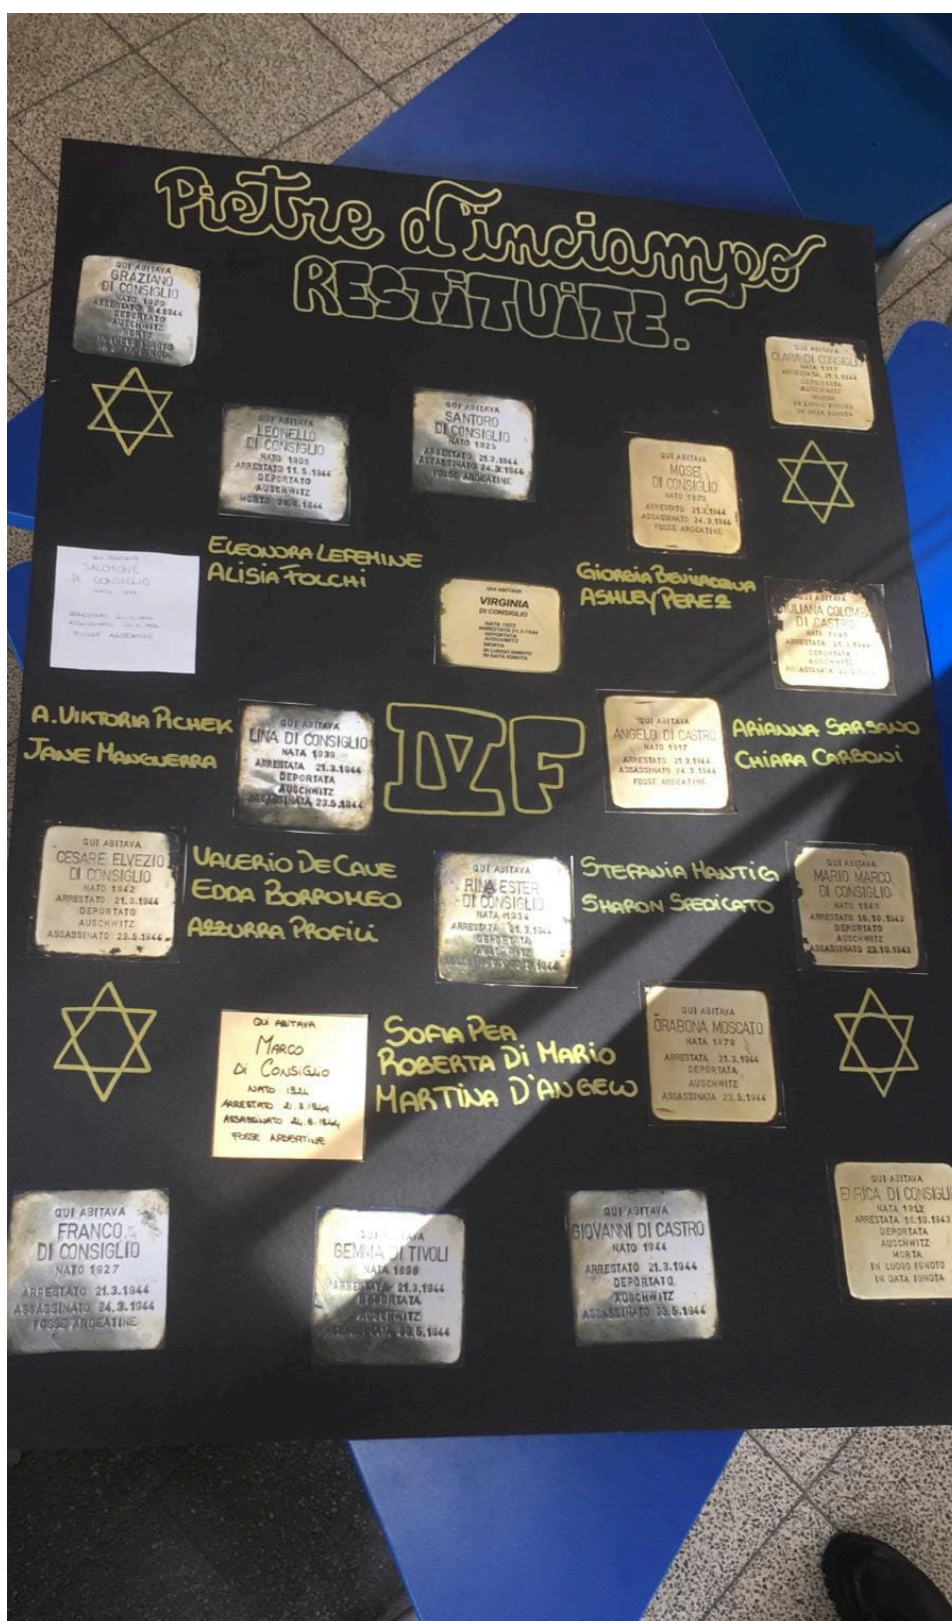 Pietre d'inciampo
RESTITUITE.
QUI ABITAVA
GRAZIANO
DI CONSIGLIO
NATO 1920
ARRESTATO
DEPORTATO
AUSCHWITZ
MORTO
IN LUOGO IGNOTO
IN DATA IGNOTA
QUI ABITAVA
CLARA DI CONSIGLIO
NATA 1917
ARRESTATA 21.3.1944
DEPORTATA
AUSCHWITZ
MORTA
IN LUOGO IGNOTO
IN DATA IGNOTA
QUI ABITAVA
LEONELLO
DI CONSIGLIO
NATO
ARRESTATO 11.5.1944
DEPORTATO
AUSCHWITZ
MORTO
QUI ABITAVA
SANTORO
DI CONSIGLIO
NATO 1925
ARRESTATO 21.3.1944
ASSASSINATO 24.3.1944
FOSSE ARDEATINE
QUI ABITAVA
MOSE'
DI CONSIGLIO
NATO
ARRESTATO 21.3.1944
ASSASSINATO 24.3.1944
FOSSE ARDEATINE
QUI ABITAVA
SALOMONE
DI CONSIGLIO
NATO
ARRESTATO
ASSASSINATO
FOSSE ARDEATINE
ELEONORA LEFEMINE
ALISIA FOLCHI
QUI ABITAVA
VIRGINIA
DI CONSIGLIO
NATA 1922
ARRESTATA 21.3.1944
DEPORTATA
AUSCHWITZ
MORTA
IN LUOGO IGNOTO
IN DATA IGNOTA
GIORGIA BEVILACQUA
ASHLEY PEREZ
QUI ABITAVA
GIULIANA COLOMBA
DI CASTRO
NATA
ARRESTATA 21.3.1944
DEPORTATA
AUSCHWITZ
ASSASSINATA 23.5.1944
A. VIKTORIA PICHEK
JANE MANGUERRA
QUI ABITAVA
LINA DI CONSIGLIO
NATA 1939
ARRESTATA 21.3.1944
DEPORTATA
AUSCHWITZ
ASSASSINATA 23.5.1944
IVF
QUI ABITAVA
ANGELO DI CASTRO
NATO 1917
ARRESTATO 21.3.1944
ASSASSINATO 24.3.1944
FOSSE ARDEATINE
ARIANNA SARSANO
CHIARA CARBONI
QUI ABITAVA
CESARE ELVEZIO
DI CONSIGLIO
NATO 1942
ARRESTATO 21.3.1944
DEPORTATO
AUSCHWITZ
ASSASSINATO 23.5.1944
VALERIO DE CAVE
EDDA BORROMEO
AZZURRA PROFILI
QUI ABITAVA
RINA ESTER
DI CONSIGLIO
NATA 1934
ARRESTATA 21.3.1944
DEPORTATA
AUSCHWITZ
ASSASSINATA 23.5.1944
STEFANIA HANTIG
SHARON SPEDICATO
QUI ABITAVA
MARIO MARCO
DI CONSIGLIO
NATO 1943
ARRESTATO 16.10.1943
DEPORTATO
AUSCHWITZ
ASSASSINATO 23.10.1943
QUI ABITAVA
MARCO
DI CONSIGLIO
NATO 1924
ARRESTATO 21.3.1944
ASSASSINATO 24.3.1944
FOSSE ARDEATINE
SOFIA PEA
ROBERTA DI MARIO
MARTINA D'ANGELO
QUI ABITAVA
ORABONA MOSCATO
NATA 1879
ARRESTATA 21.3.1944
DEPORTATA
AUSCHWITZ
ASSASSINATA 23.5.1944
QUI ABITAVA
FRANCO
DI CONSIGLIO
NATO 1927
ARRESTATO 21.3.1944
ASSASSINATO 24.3.1944
FOSSE ARDEATINE
QUI ABITAVA
GEMMA DI TIVOLI
NATA
ARRESTATA 21.3.1944
DEPORTATA
AUSCHWITZ
ASSASSINATA 23.5.1944
QUI ABITAVA
GIOVANNI DI CASTRO
NATO 1944
ARRESTATO 21.3.1944
DEPORTATO
AUSCHWITZ
ASSASSINATO 23.5.1944
QUI ABITAVA
ENRICA DI CONSIGLIO
NATA 1912
ARRESTATA 16.10.1943
DEPORTATA
AUSCHWITZ
MORTA
IN LUOGO IGNOTO
IN DATA IGNOTA